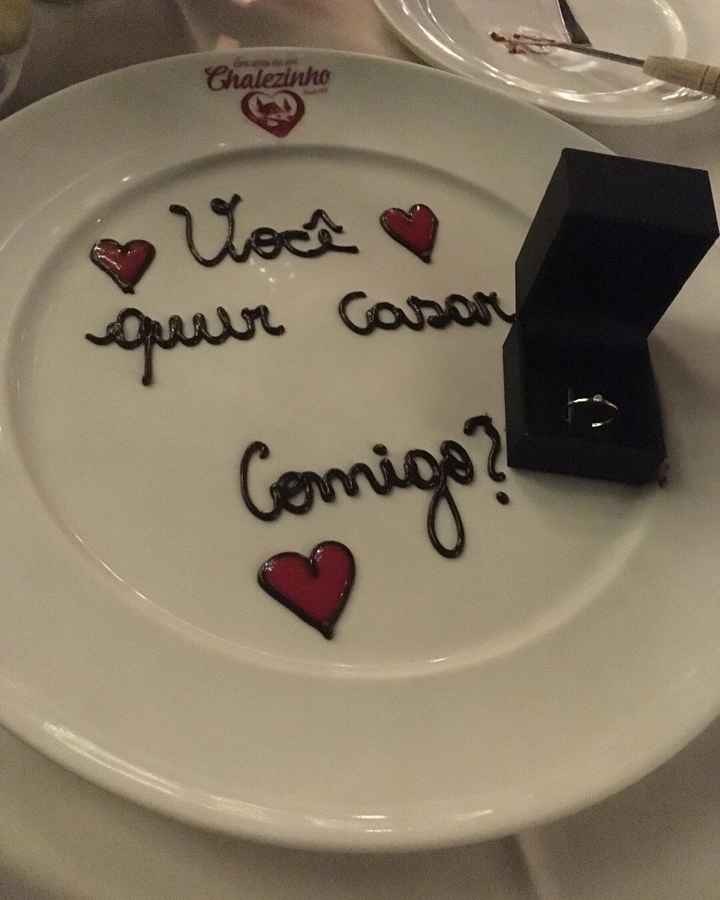 Chalezinho
Você
quer casar
Comigo?